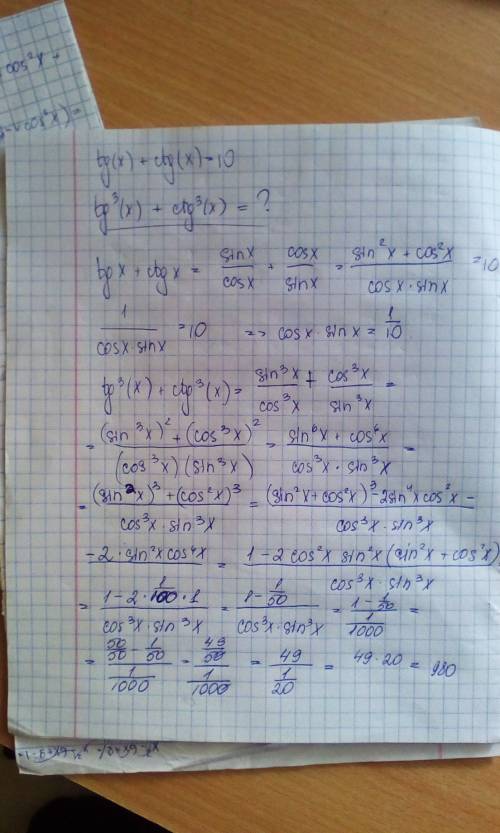 cos²x +
tg(x) + ctg(x) = 10
tg³(x) + ctg³(x) = ?
tgx + ctgx = sinx/cosx + cosx/sinx = (sin²x + cos²x)/(cosx·sinx) = 10
1/(cosx·sinx) = 10 => cosx·sinx = 1/10
tg³(x) + ctg³(x) = sin³x/cos³x + cos³x/sin³x =
= ((sin³x)² + (cos³x)²)/((cos³x)(sin³x)) = (sin⁶x + cos⁶x)/(cos³x·sin³x) =
= ((sin²x)³ + (cos²x)³)/(cos³x·sin³x) = ((sin²x + cos²x)³ - 2sin⁴x cos²x -)/(cos³x·sin³x)
- 2·sin²x cos⁴x = (1 - 2cos²x sin²x (sin²x + cos²x))/(cos³x·sin³x)
= (1 - 2·1/100·1)/(cos³x·sin³x) = (1 - 1/50)/(cos³x·sin³x) = (1 - 1/50)/(1/1000) =
= (50/50 - 1/50)/(1/1000) = (49/50)/(1/1000) = 49/(1/20) = 49·20 = 980